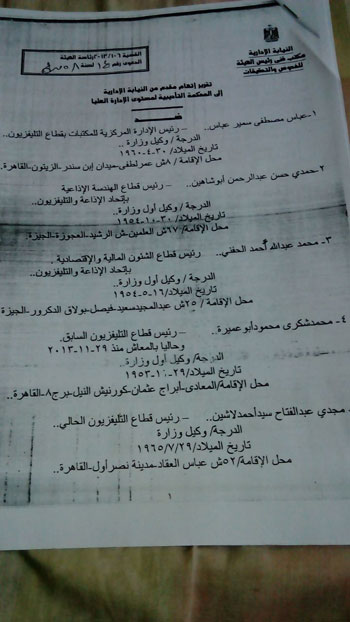 النيابة الإدارية
مكتب فنى رئيس الهيئة
للفحوص والتحقيقات
القضية ٢٠١٣/١٠٦ رئاسة الهيئة
الدعوى رقم لسنة ٥٨
تقرير إتهام مقدم من النيابة الإدارية
إلى المحكمة التأديبية لمستوى الإدارة العليا
ضـــد
١-عباس مصطفى سمير عباس.. – رئيس الإدارة المركزية للمكتبات بقطاع التليفزيون..
الدرجة / وكيل وزارة..
تاريخ الميلاد/ ٣٠-٤-١٩٦٠
محل الإقامة/ ٨ش عمر لطفى-ميدان إبن سندر-الزيتون-القاهرة.
٢-حمدي حسن عبدالرحمن أبوشاهين.. – رئيس قطاع الهندسة الإذاعية
بإتحاد الإذاعة والتليفزيون..
الدرجة/ وكيل أول وزارة..
تاريخ الميلاد/ ٣٠-١٠-١٩٥٤
محل الإقامة/ ٦٧ش العلمين-ش الرشيد-العجوزة-الجيزة
٣- محمد عبدالله أحمد الحفني.. رئيس قطاع الشئون المالية والإقتصادية..
بإتحاد الإذاعة والتليفزيون..
الدرجة / وكيل أول وزارة..
تاريخ الميلاد/ ١٦-٥-١٩٥٤
محل الإقامة / ٢٥ش عبدالمجيد سعيد-فيصل-بولاق الدكرور-الجيزة
٤ - محمدشكرى محمود أبوعميرة.. – رئيس قطاع التليفزيون السابق..
وحاليا بالمعاش منذ ٢٩-١١-٢٠١٣
الدرجة/ وكيل أول وزارة..
تاريخ الميلاد/ ٢٩-١٠-١٩٥٣
محل الإقامة/المعادى-أبراج عثمان-كورنيش النيل-برج٨-القاهرة..
مجدي عبدالفتاح سيدأحمدلاشين.. – رئيس قطاع التليفزيون الحالي..
الدرجة/ وكيل وزارة
تاريخ الميلاد/ ١٩٦٥/٧/٢٩
محل الإقامة/ ٥٢ش عباس العقاد-مدينة نصر أول-القاهرة..
١